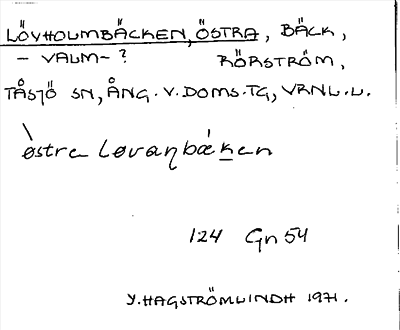 LÖVHOLMBÄCKEN, ÖSTRA, BÄCK,
– VALM– ? RÖRSTRÖM,
TÅSJÖ SN, ÅNG. V. DOMS. TG, VRNL. L.
østre Løvaŋbæken
124 Gn 54
Y. HAGSTRÖMLINDH 1971.